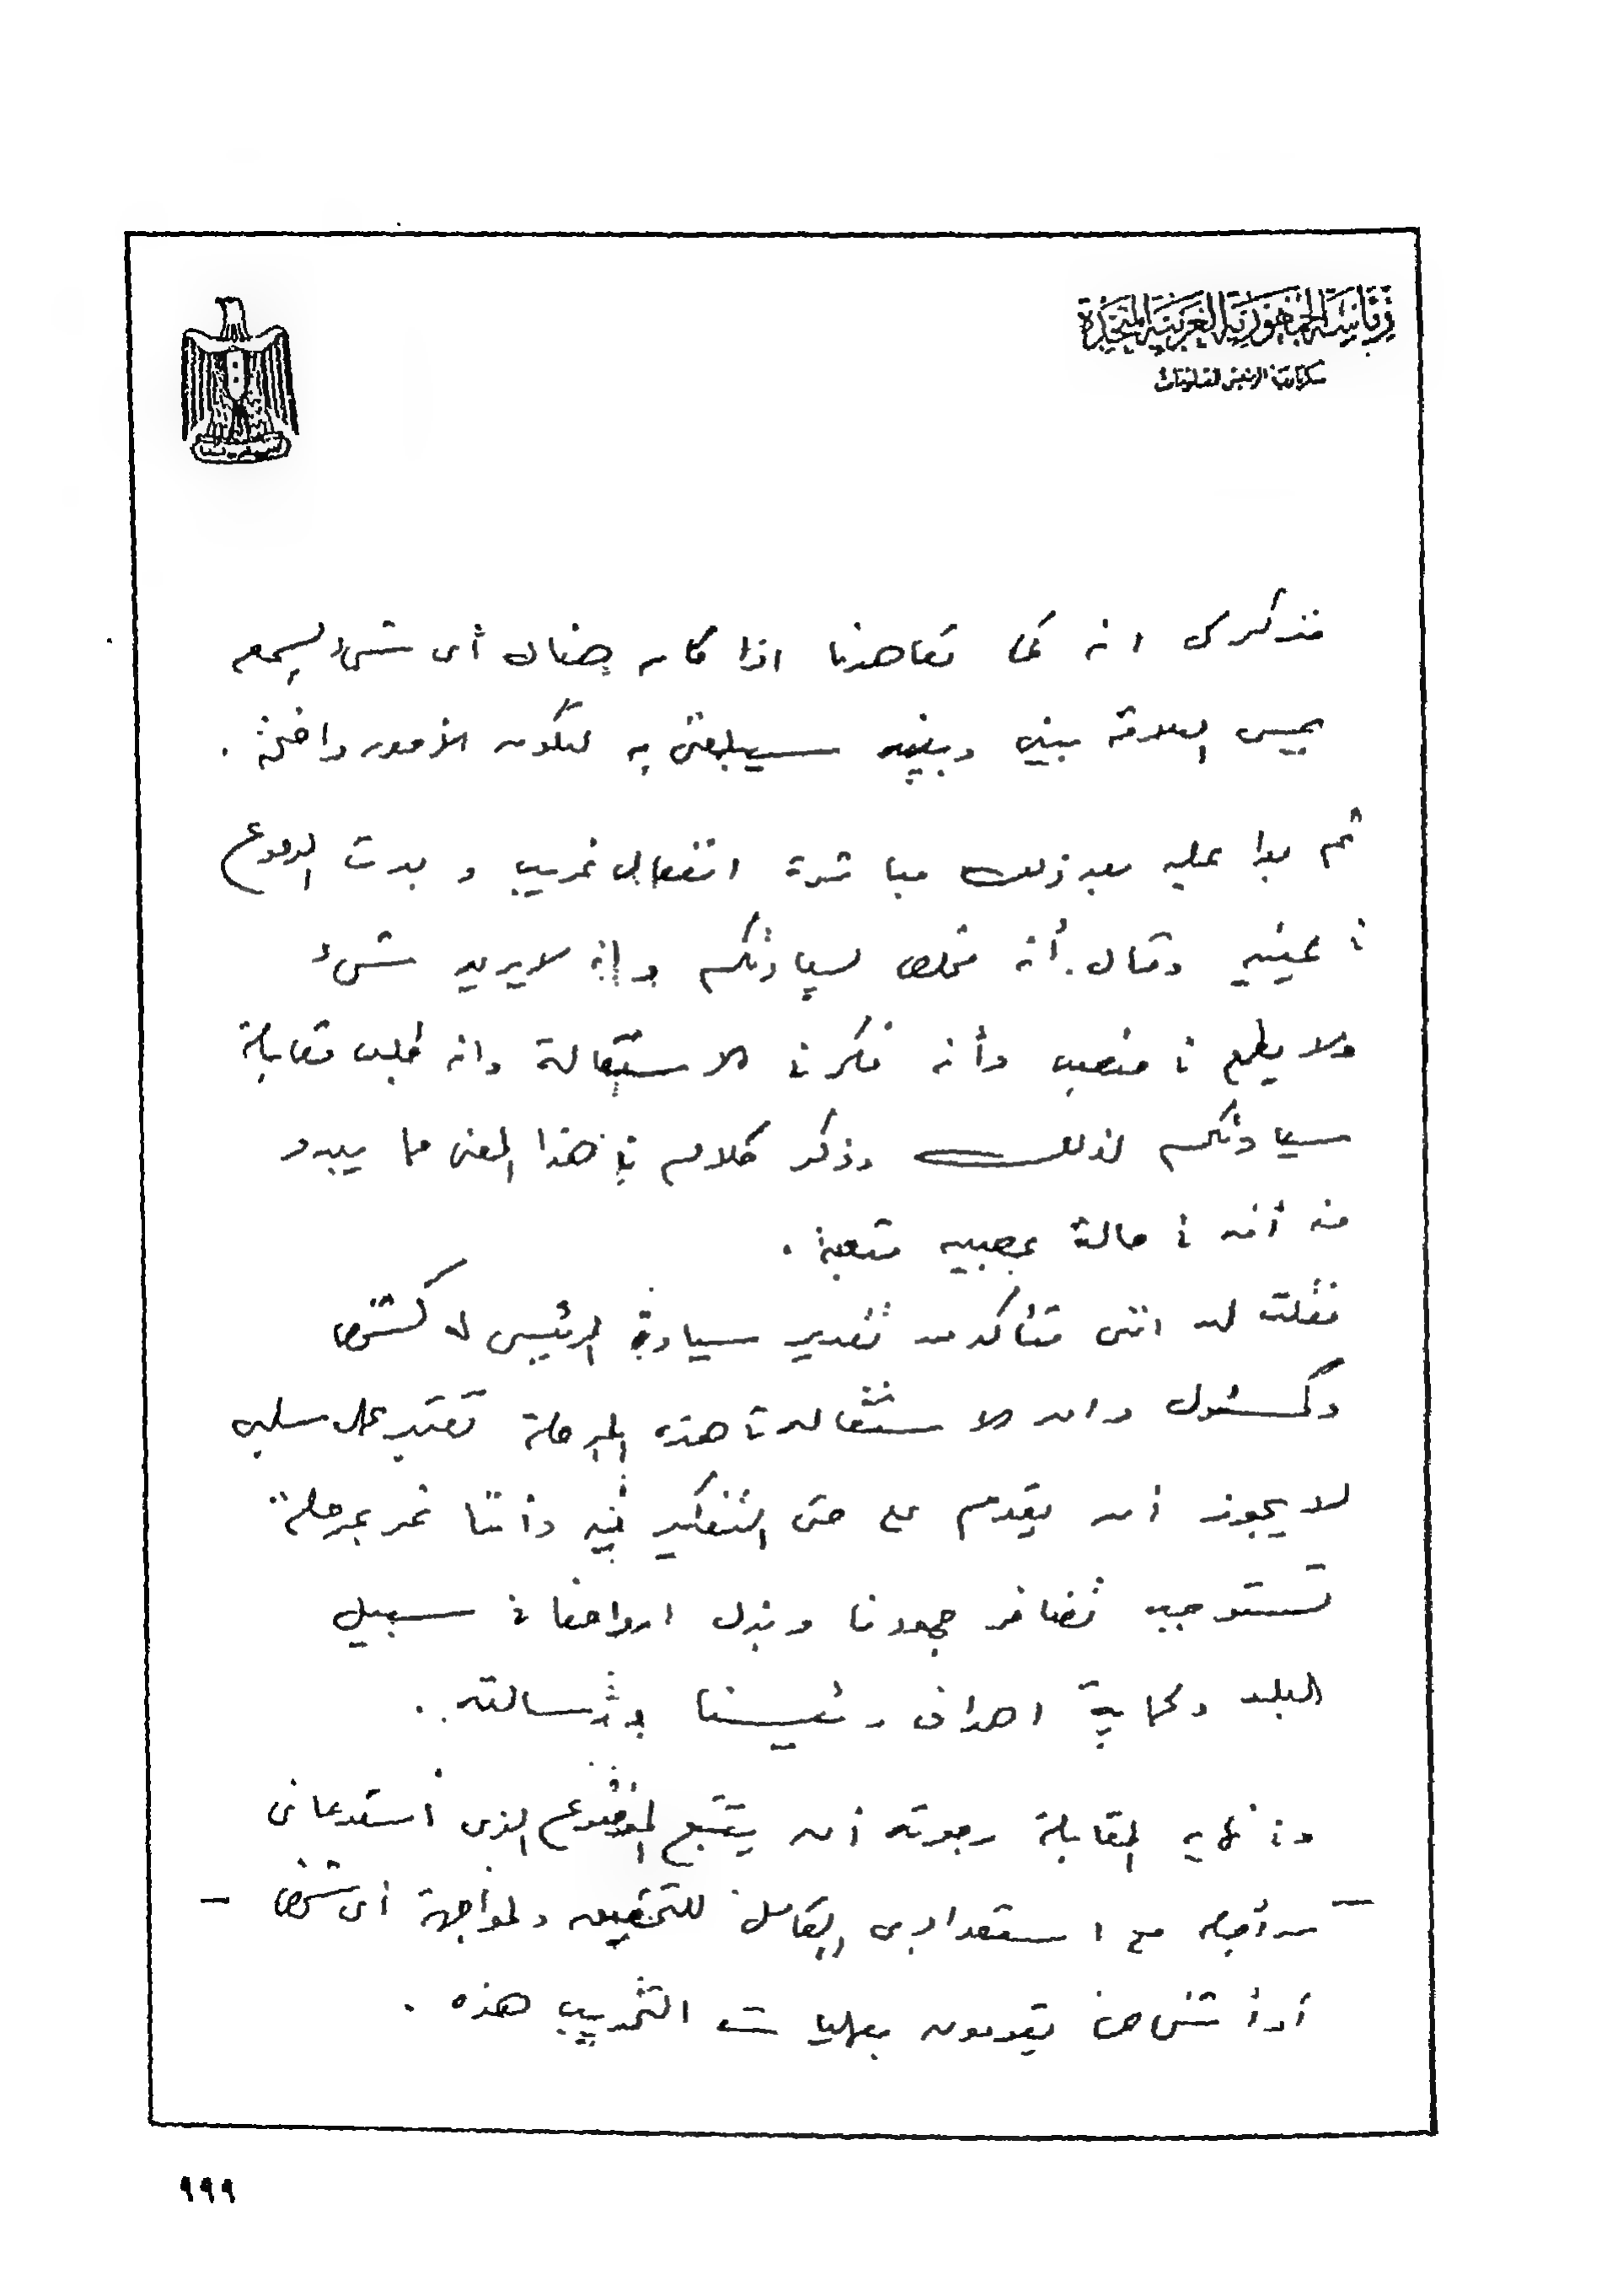 رئاسة الجمهورية العربية المتحدة
سكرتارية الرئيس للمعلومات
فذكر لى انه كما تعاهدنا اذا كان هناك أى شئ يسمعه
يمس العلاقة بينى وبينه سيبلغنى به لتكون الأمور واضحة .
ثم بدا عليه بعد ذلك مباشرة انفعال غريب و بدت الدموع
فى عينيه وقال أنه مخلص لسيادتكم وانه لا يريد شئ
ولا يطمع فى منصب وأنه فكر فى الاستقالة وانه طلب مقابلة
سيادتكم لذلك وذكر كلام فى هذا المعنى مما يبدو
منه أنه فى حالة عصبيه متعبة .
فقلت له اننى متأكد من تقدير سيادة الرئيس له كشخص
وكمسئول وان الاستقاله فى هذه المرحلة تعتبر عمل سلبى
لا يجوز أن يقدم على حتى التفكير فيه وأننا نمر بمرحلة
تستوجب تضافر جهودنا وبذل ارواحنا فى سبيل
البلد وحماية اهداف رئيسنا ورسالته .
وفى نهايه المقابلة رجوته أن يتتبع الموضوع الذى استدعانى
- من أجله مع استعدادى الكامل للتحقيق ولمواجهة أى شخص -
أو أشخاص يقومون بعمليات التخريب هذه .
٩٩٩